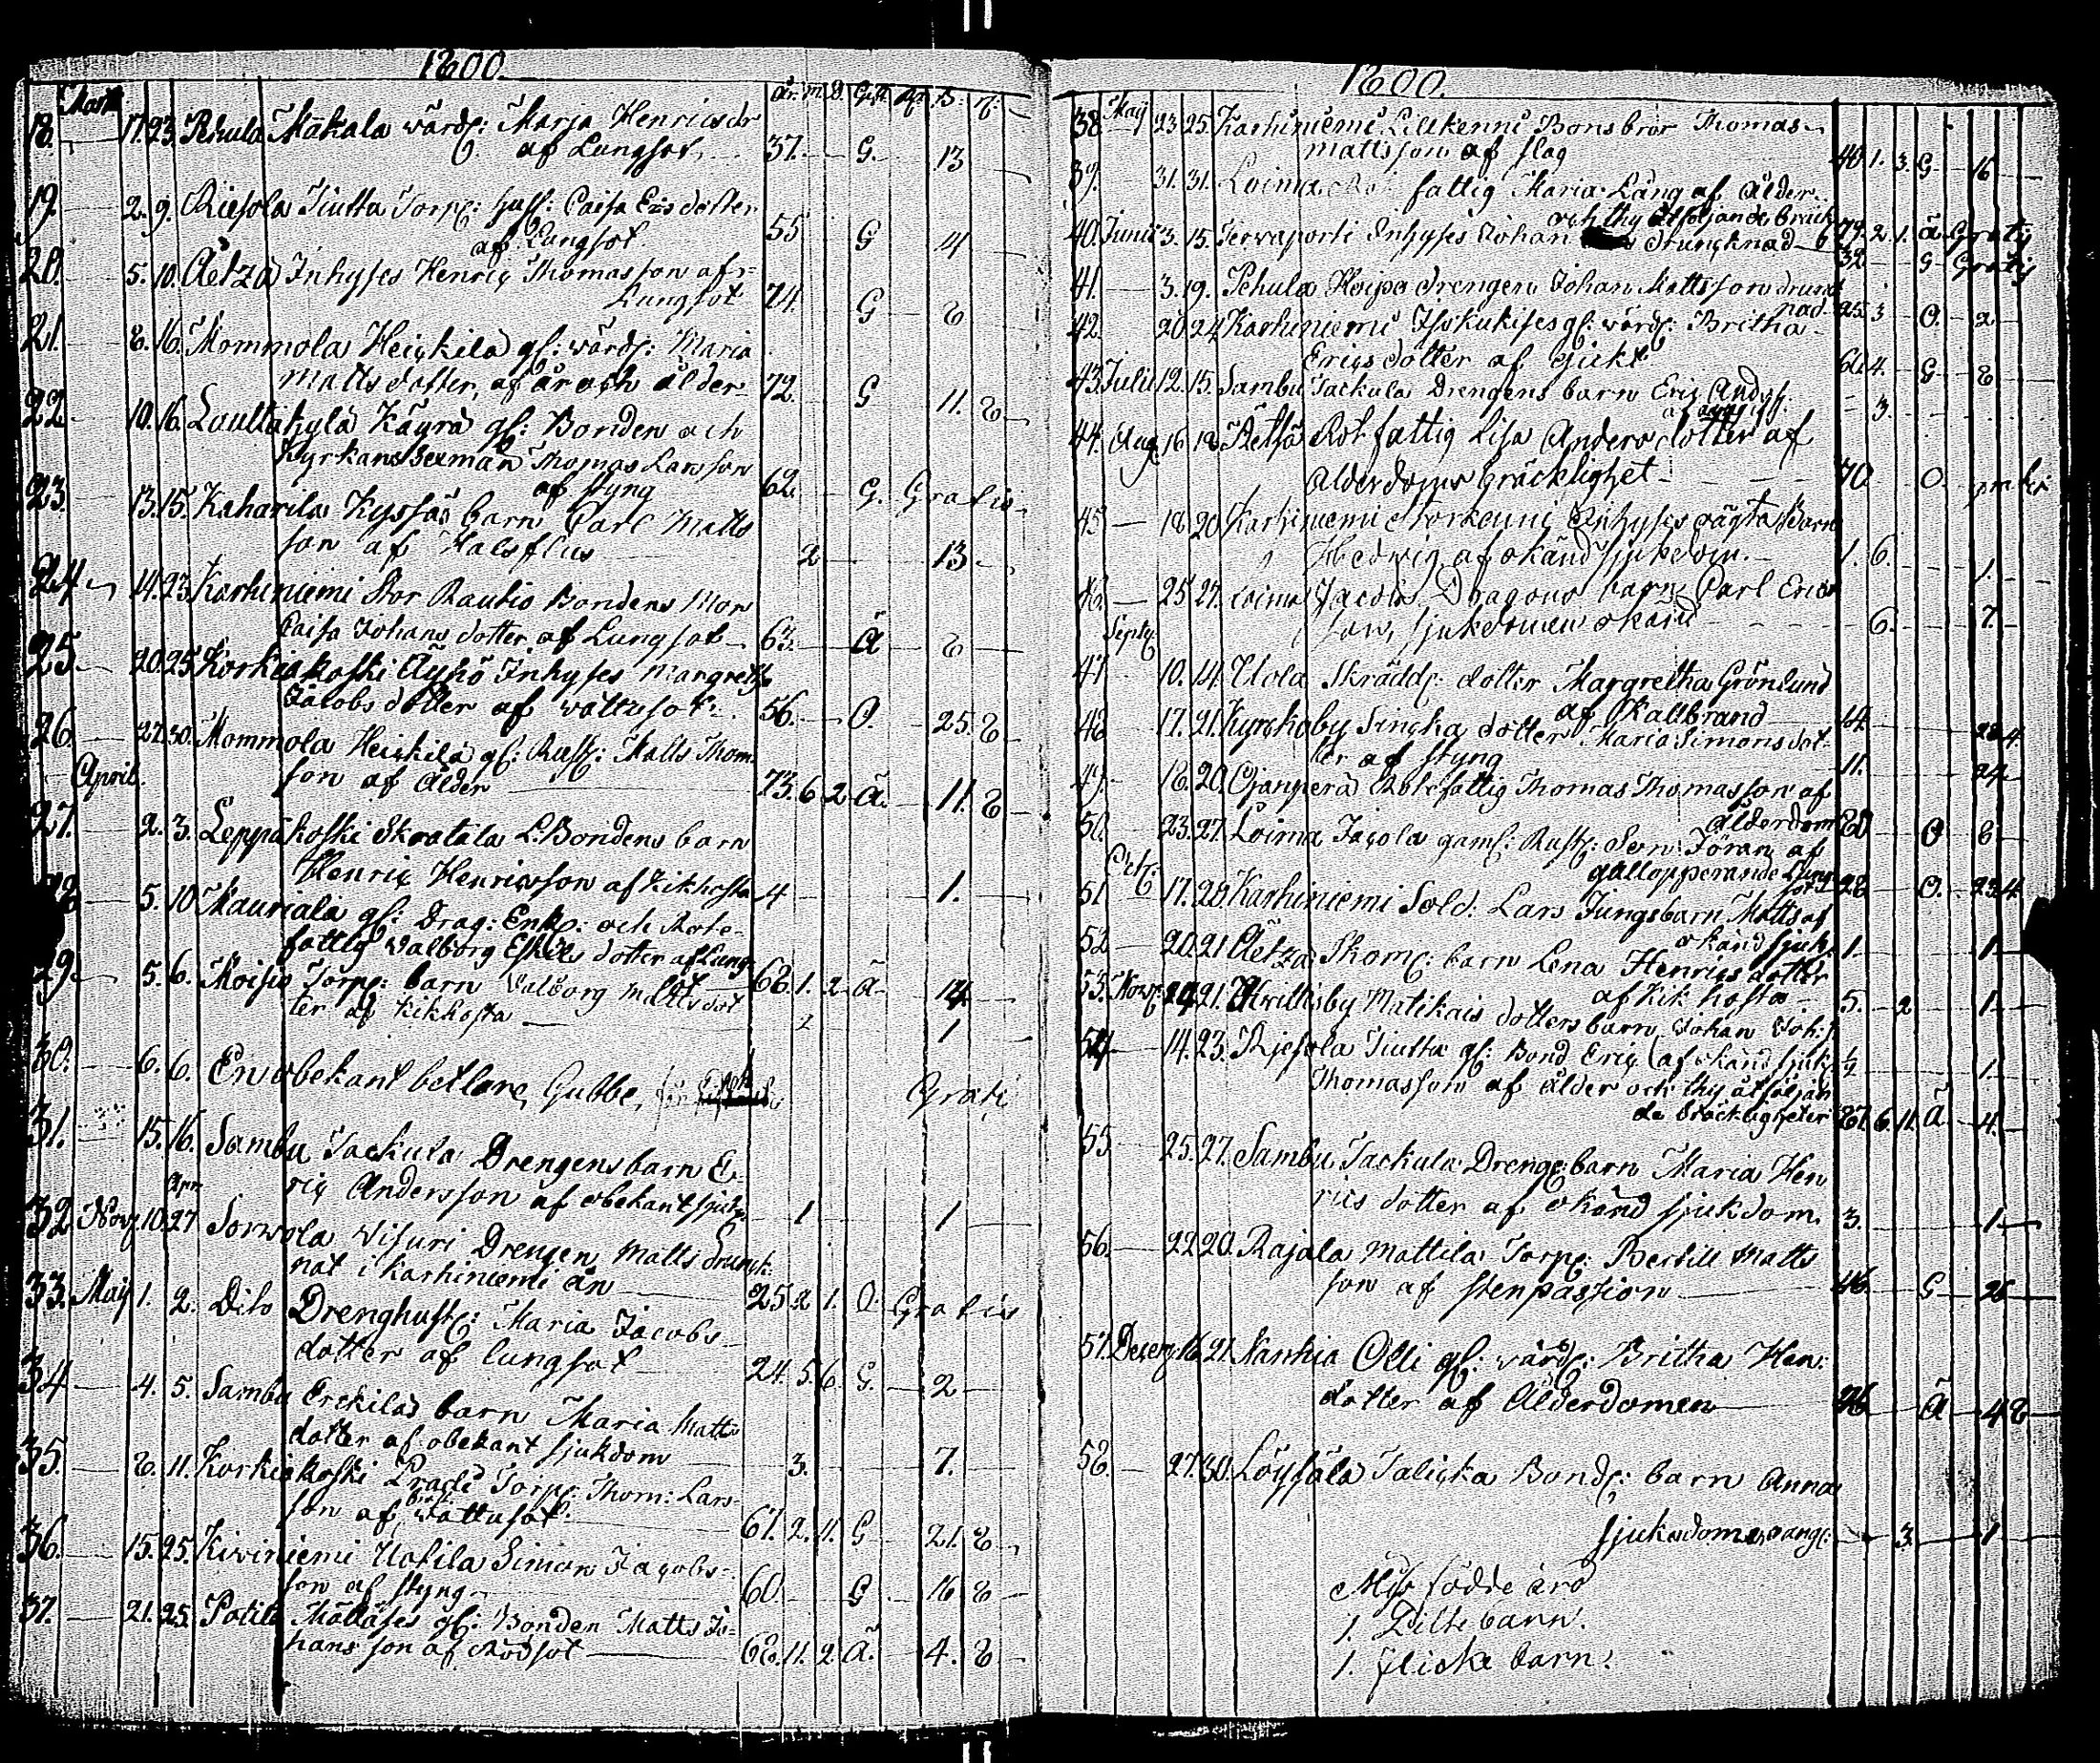 1800.
Mart. År. M. D. Gift. R. ß. rf.
18. — 17. 23. Pehula Mäkälä värdf: Marja Henricsdr
af Lungsot, 37. — G. — 13
19. — 2. 9. Riesola Tiutta Torp: hust: Caisa Ersdotter
af Lungsot. 55 G 4
20. 5. 10. Äetzä Inhyses Henric Thomasson af
Lungsot 74. G 8
21. 8. 16. Mommola Heickilä gl: värdf: Maria
Mattsdotter, af år och ålder 72. G 11. 8
22. 10. 16. Lauttakylä Käyrä gl: Bonden och
Kyrkans Sexman Thomas Larsson
af styng 62. G. Gratis
23. 13. 15. Kaharila Kyssäs barn Carl Matts
son af Halsflus 2 — 13
24 — 14. 23. Karhiniemi Stor Rautio Bondens Mor
Caisa Johans dotter af Lungsot 63. — Ä 8
25. — 20. 25. Korkiakoski Äyhö Inhyses Margretha
Jacobs dotter af vattusot 56. — O. 25. 8
26. 27. 30. Mommola Heickilä gl: Rust: Matts Thom
son af Ålder 73. 6 2 Ä. 11. 8
April.
27. 2. 3. Leppäkoski Skratala L. Bondens barn
Henric Henricsson af Kikhosta 4 1.
28 5. 10 Mauriala gl: Drag: Enk: och Rote-
fattig Walborg Eskils dotter af Lung
sot 68. 1. 2 Ä 14
29. 5. 6. Moisio Torp: barn Valborg Mattsdot
ter af Kikhosta 2 1
30. 6. 6. En obekant betlare, Gubbe, Gratis
31. 15. 16. Sambu Jackula Drengens barn E-
ric Andersson af obekant sjukd 1 1
32 Nov. 10. Apr. 27 Sorvola Visuri Drengen Matts drunk
nat i Karhiniemi ån 25. 2 1. O. Gratis
33. May 1. 2. Dito Drenghust: Maria Jacobs
dotter af lungsot 24. 5. 6. G. 2
34 — 4. 5. Sambu Erckilas barn Maria Matts
dotter af obekant sjukdom 3. 7.
35. 8. 11. Korkiakoski Prade Torp: Thom: Lars-
son af bröst vattusot. 61. 2. 11. G 21. 8
36. 15. 25. Kiviniemi Uotila Simon Jacobs-
son af styng. 60. G 16 8
37. — 21. 25. Potila Mattases gl: Bonden Matts Jo-
hansson af Rödsot 68. 11. 2. Ä. 4. 8
1800.
38. May 23. 25. Karhiniemi Lillkenni Bonsbror Thomas
Mattsson af slag 40. 1. 3. G 16
39. 31. 31. Loima Rot fattig Maria Lång af Ålder
och thy åtföljande bräck 79. 2. 1. Ä Gratis
40. Junii 3. 15. Tervaporti Inhyses Johan drunknad 32 G Gratis
41. — 3. 19. Pehula Hoipo drengen Johan Mattsson drunk
nad. 25. 3 O. 2
42. 20. 24. Karhiniemi Iso Kukises gl: värdf: Britha
Ericsdotter af gickt 61 4. G 8
43. Julii 12. 15. Sambu Jackula Drengens barn Eric Andrs. 3.
44. Aug. 16 18 Äetsä Rot fattig Lisa Anders dotter af
Ålderdoms bräcklighet 70 O.
45 — 18. 20 Karhiniemi Storkenni Inhyses oägta Barn
Hedwig af okänd sjukdom. 1. 6. 1.
46. — 25 27. Loima Jacobs Dragons barn Carl Erics
son, sjukdomen okänd 6. 7.
Septr.
47 10. 14. Uola Skrädd: dotter Margretha Grönlund
af Kallbrand 14. 22 4.
48 17. 21. Kyrckoby Sincka dotter Maria Simonsdot-
ter af styng 11. 24
49. 18. 20. Ojanperä Rotefattig Thomas Thomasson af
ålderdom 80 O 6
50. 23. 27. Loima Jacola gaml: Rust: Son Jöran af
gallopperande Lung
sot 28 — O. 22 4
Octr.
51 17. 20 Karhiniemi Sold: Lars Jungs barn Matts af
okänd sjuk. 1. 1.
52 — 20. 21. Äetzä Skom: barn Lena Henrics dotter
af Kikhosta 5. 2 1
53. Nov. 20. 21. Kvillisby Matikais dotters barn, Johan Joh:s
af okänd sjukd ½ 1.
54 — 14. 23. Riesola Tiutta gl: Bond Eric
Thomasson af ålder och thy åtföljan
de bräckligheter 87. 6. 11. Ä 4.
55 25. 27. Sambu Jackula Dreng: barn Maria Hen
rics dotter af okänd sjukdom. 3. 1.
56. — 22 20. Rajala Mattila Torp: Bertill Matts
son af stenpassion 46. G 26
57. Decemr. 16 21. Nankia Olli gl: värdf: Britha Hen:
dotter af Ålderdomen 76 Ä 4 8
58. — 27. 30. Löysälä Talicka Bond: barn Anna
sjukdomen oang: 3. 1
Miss födde äro
1. Pilte barn.
1. Flicke barn.